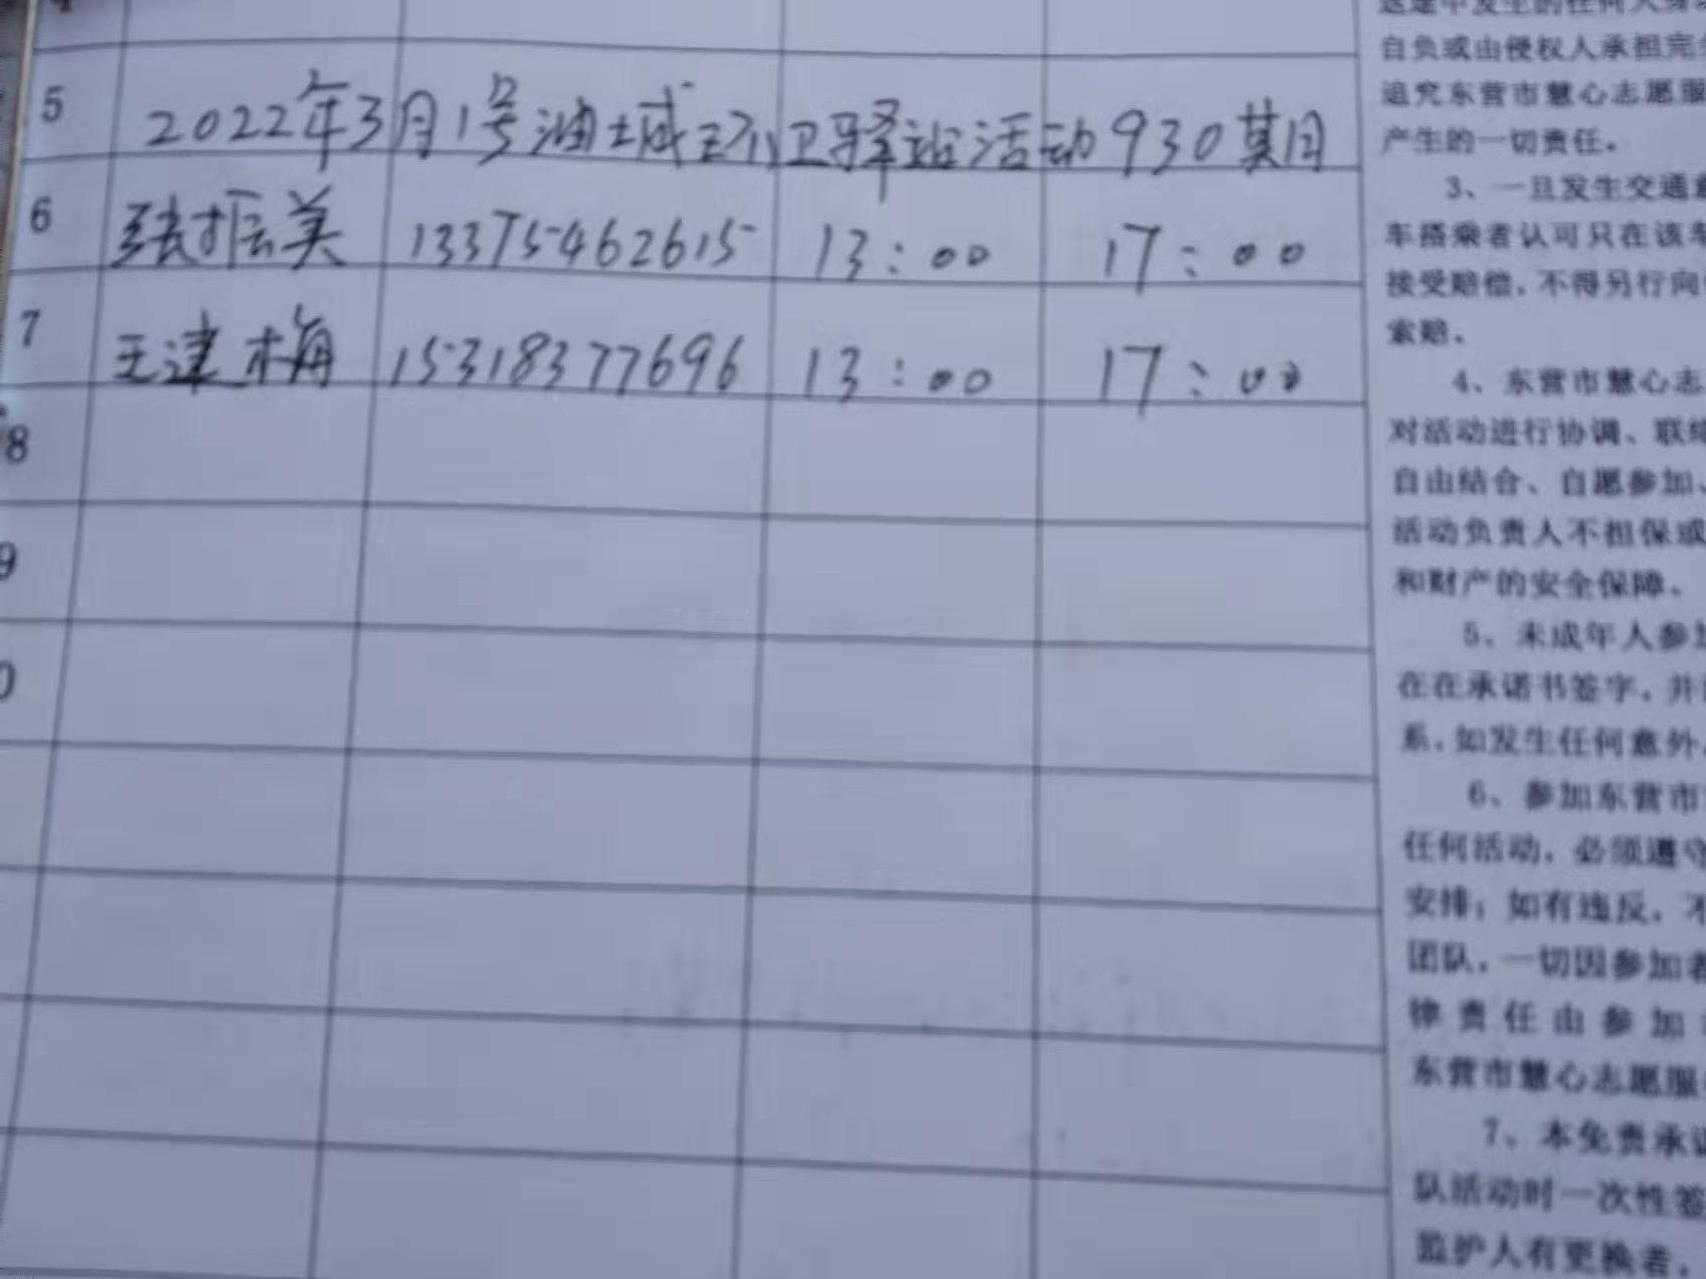 5 2022年3月1号油城环卫驿站活动930期
6 张振美 13375462615 13:00 17:00
7 王津梅 15318377696 13:00 17:00
8
9
0
自负或由侵权人承担完
追究东营市慧心志愿服
产生的一切责任。
3、一旦发生交通
车搭乘者认可只在该车
接受赔偿,不得另行向
索赔。
4、东营市慧心志
对活动进行协调、联络
自由结合、自愿参加、
活动负责人不担保或
和财产的安全保障。
5、未成年人参加
在在承诺书签字,并
系,如发生任何意外,
6、参加东营市
任何活动,必须遵守
安排;如有违反,不
团队,一切因参加者
律责任由参加
东营市慧心志愿服
7、本免责承诺
队活动时一次性签
监护人有更换者,